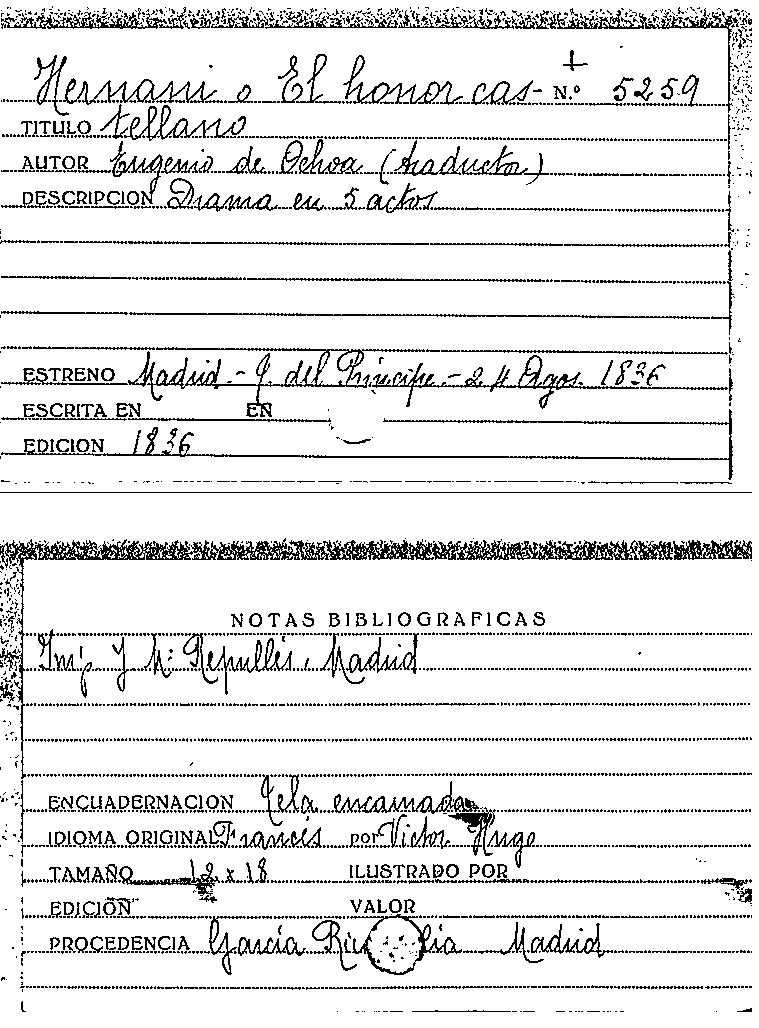 +
Hernani o El honor cas- N.º 5259
TITULO tellano
AUTOR Eugenio de Ochoa (traductor)
DESCRIPCION Drama en 5 actos
ESTRENO Madrid.- T. del Príncipe.- 24 Agos. 1836
ESCRITA EN EN
EDICION 1836
NOTAS BIBLIOGRAFICAS
Imp. J Mª Repullés, Madrid
ENCUADERNACION Tela encarnada
IDIOMA ORIGINAL Francés por Victor Hugo
TAMAÑO 12 x 18 ILUSTRADO POR
EDICIÓN VALOR
PROCEDENCIA García Madrid